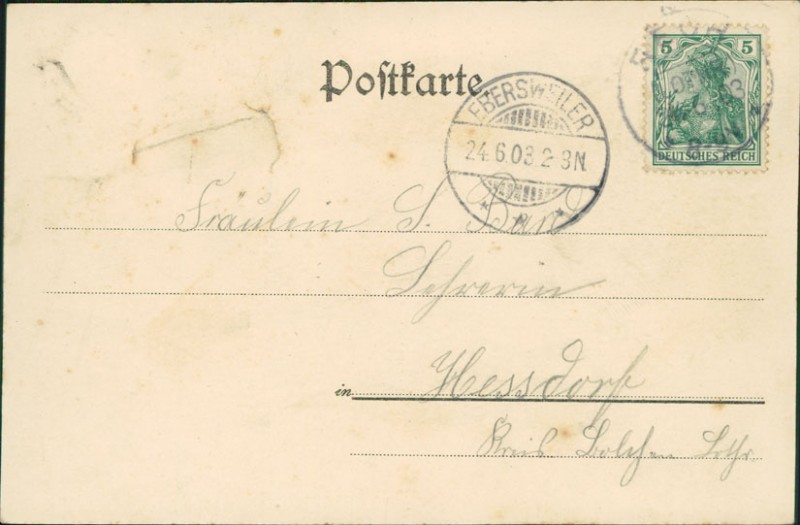 5 5
DEUTSCHES REICH
Postkarte
EBERSWEILER
24.6.03.2-3N.
Fräulein S.
Lehrerin
in Hessdorf
Kreis Bolchen Lothr.